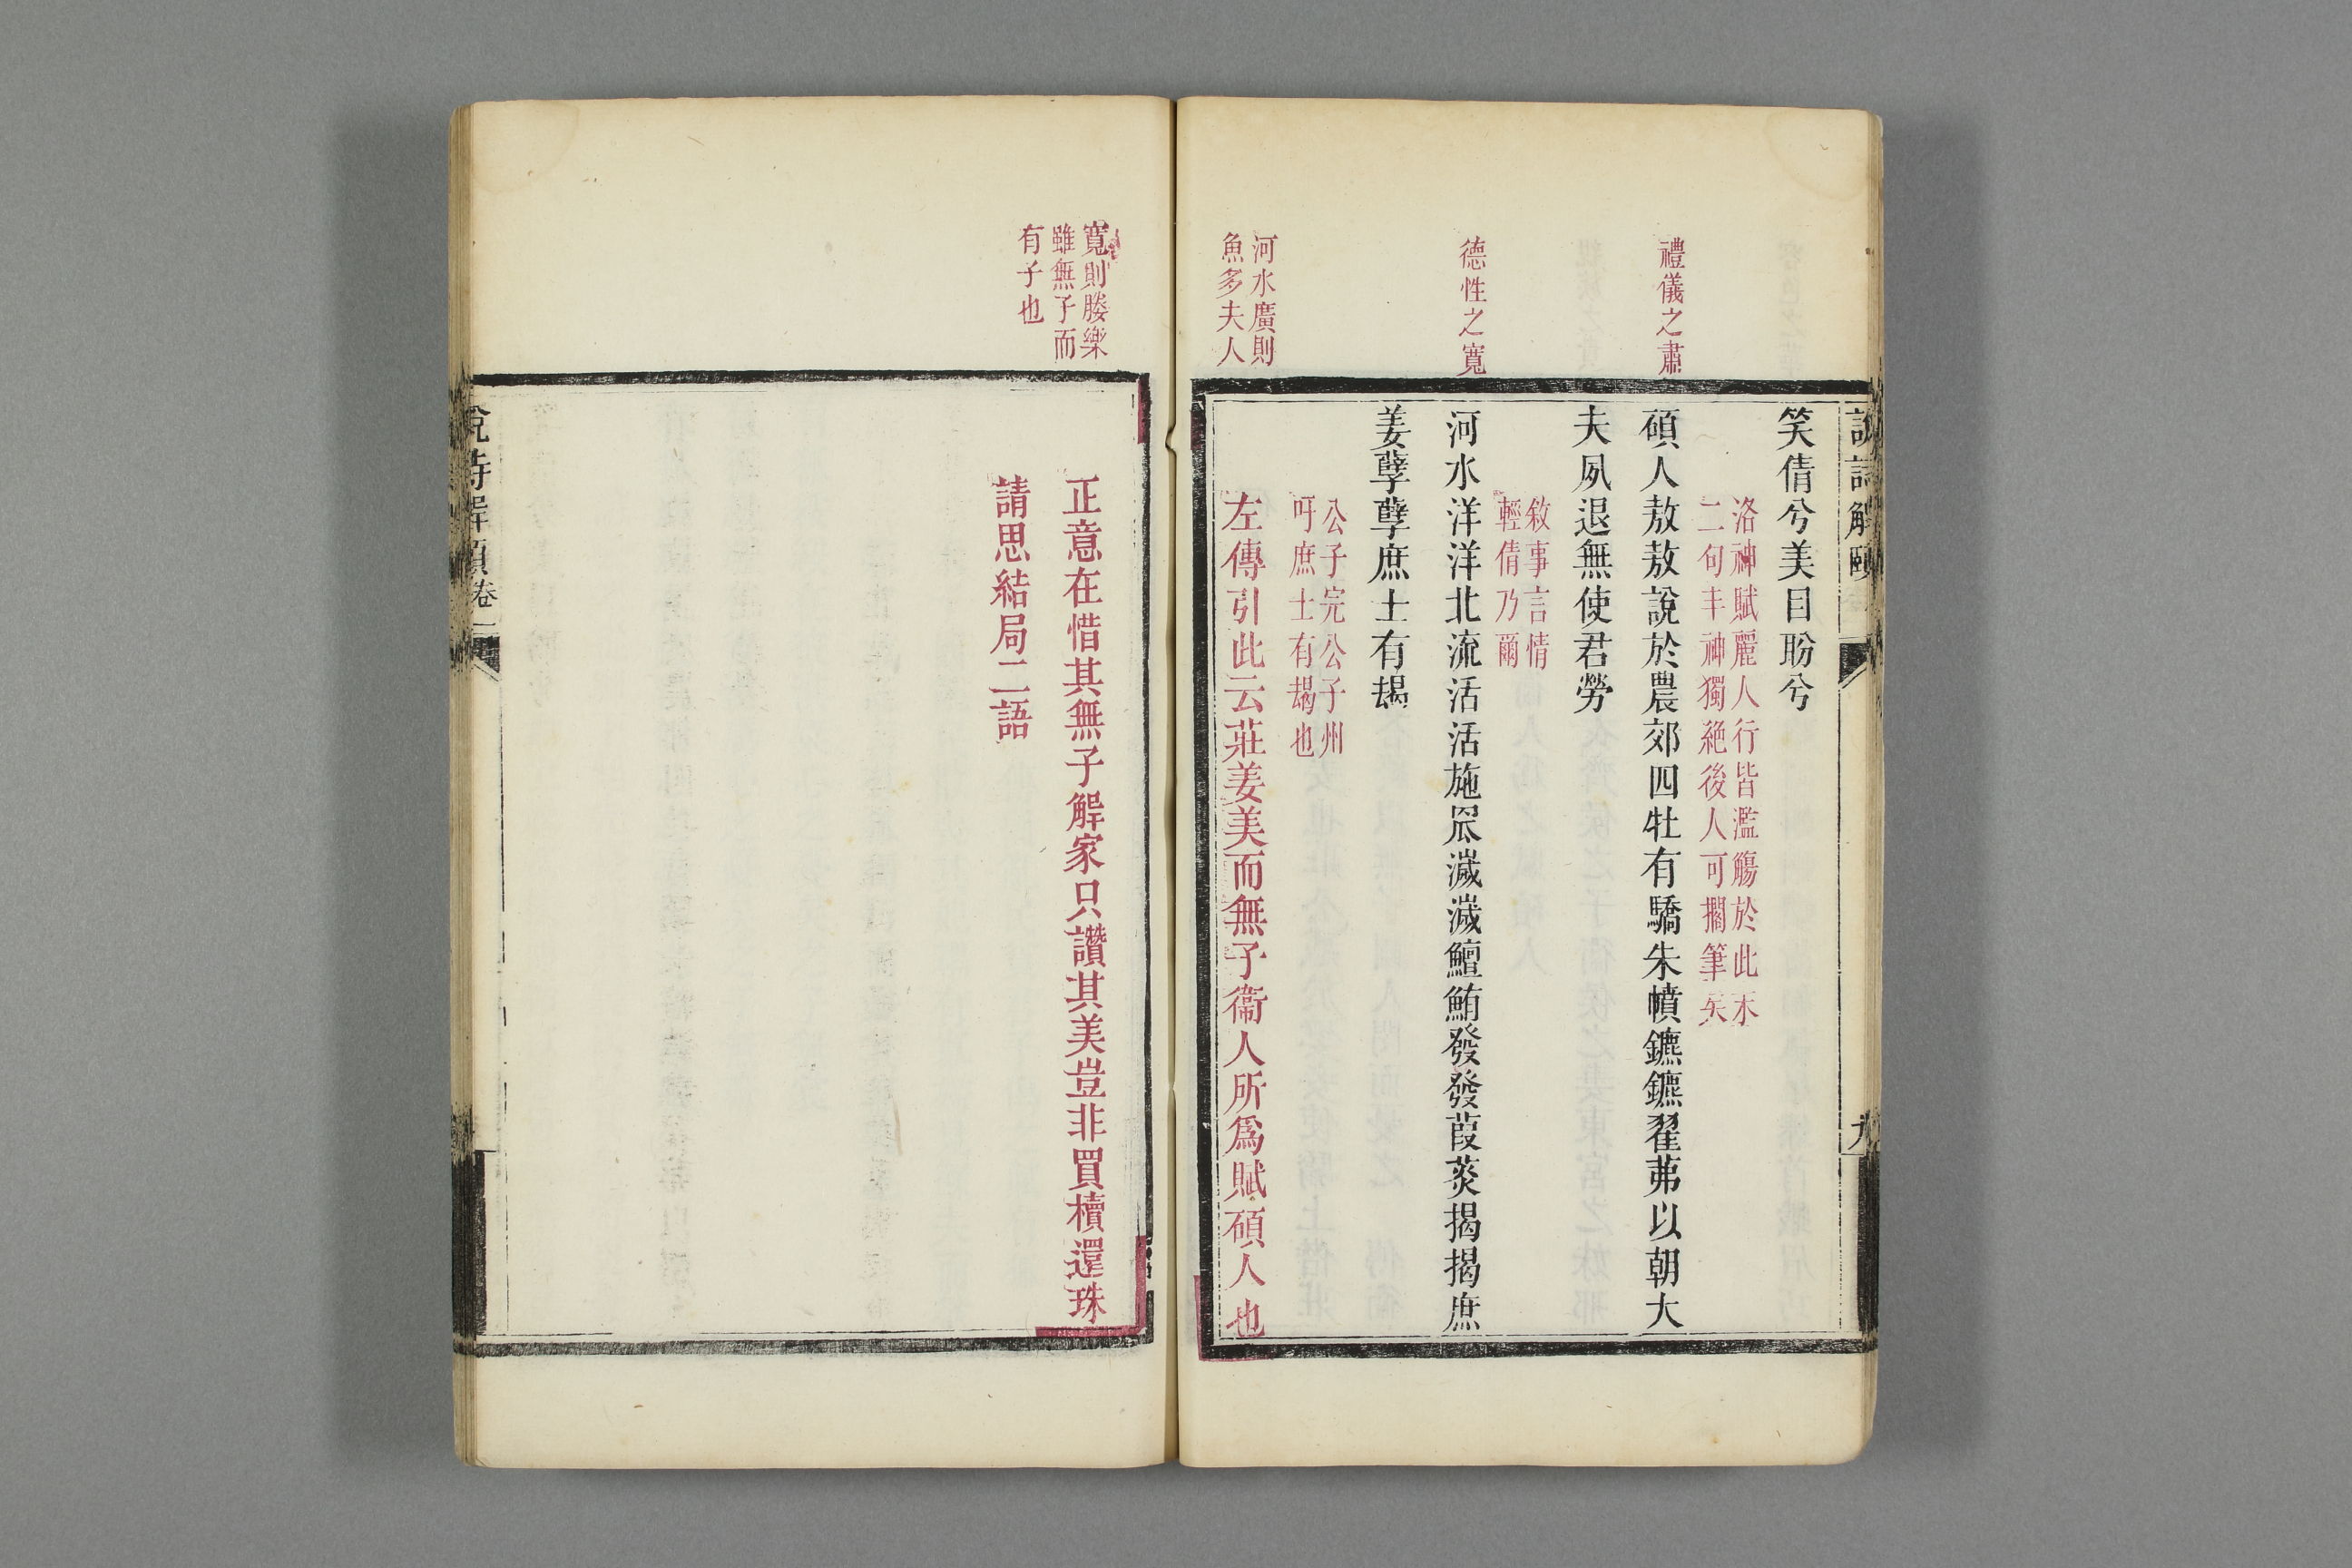 說詩解頤
九
笑倩兮美目盼兮
洛神賦麗人行皆濫觴於此末
二句丰神獨絶後人可擱筆矣
禮儀之肅
碩人敖敖說於農郊四牡有驕朱幩鑣鑣翟茀以朝大
夫夙退無使君勞
敘事言情
輕倩乃爾
德性之寬
河水洋洋北流活活施罛濊濊鱣鮪發發葭菼揭揭庶
姜孽孽庶士有朅
公子完公子州
吁庶士有朅也
河水廣則
魚多夫人
左傳引此云莊姜美而無子衞人所爲賦碩人也
寬則媵樂
雖無子而
有子也
正意在惜其無子解家只讚其美豈非買櫝還珠
請思結局二語
說詩解頤卷一